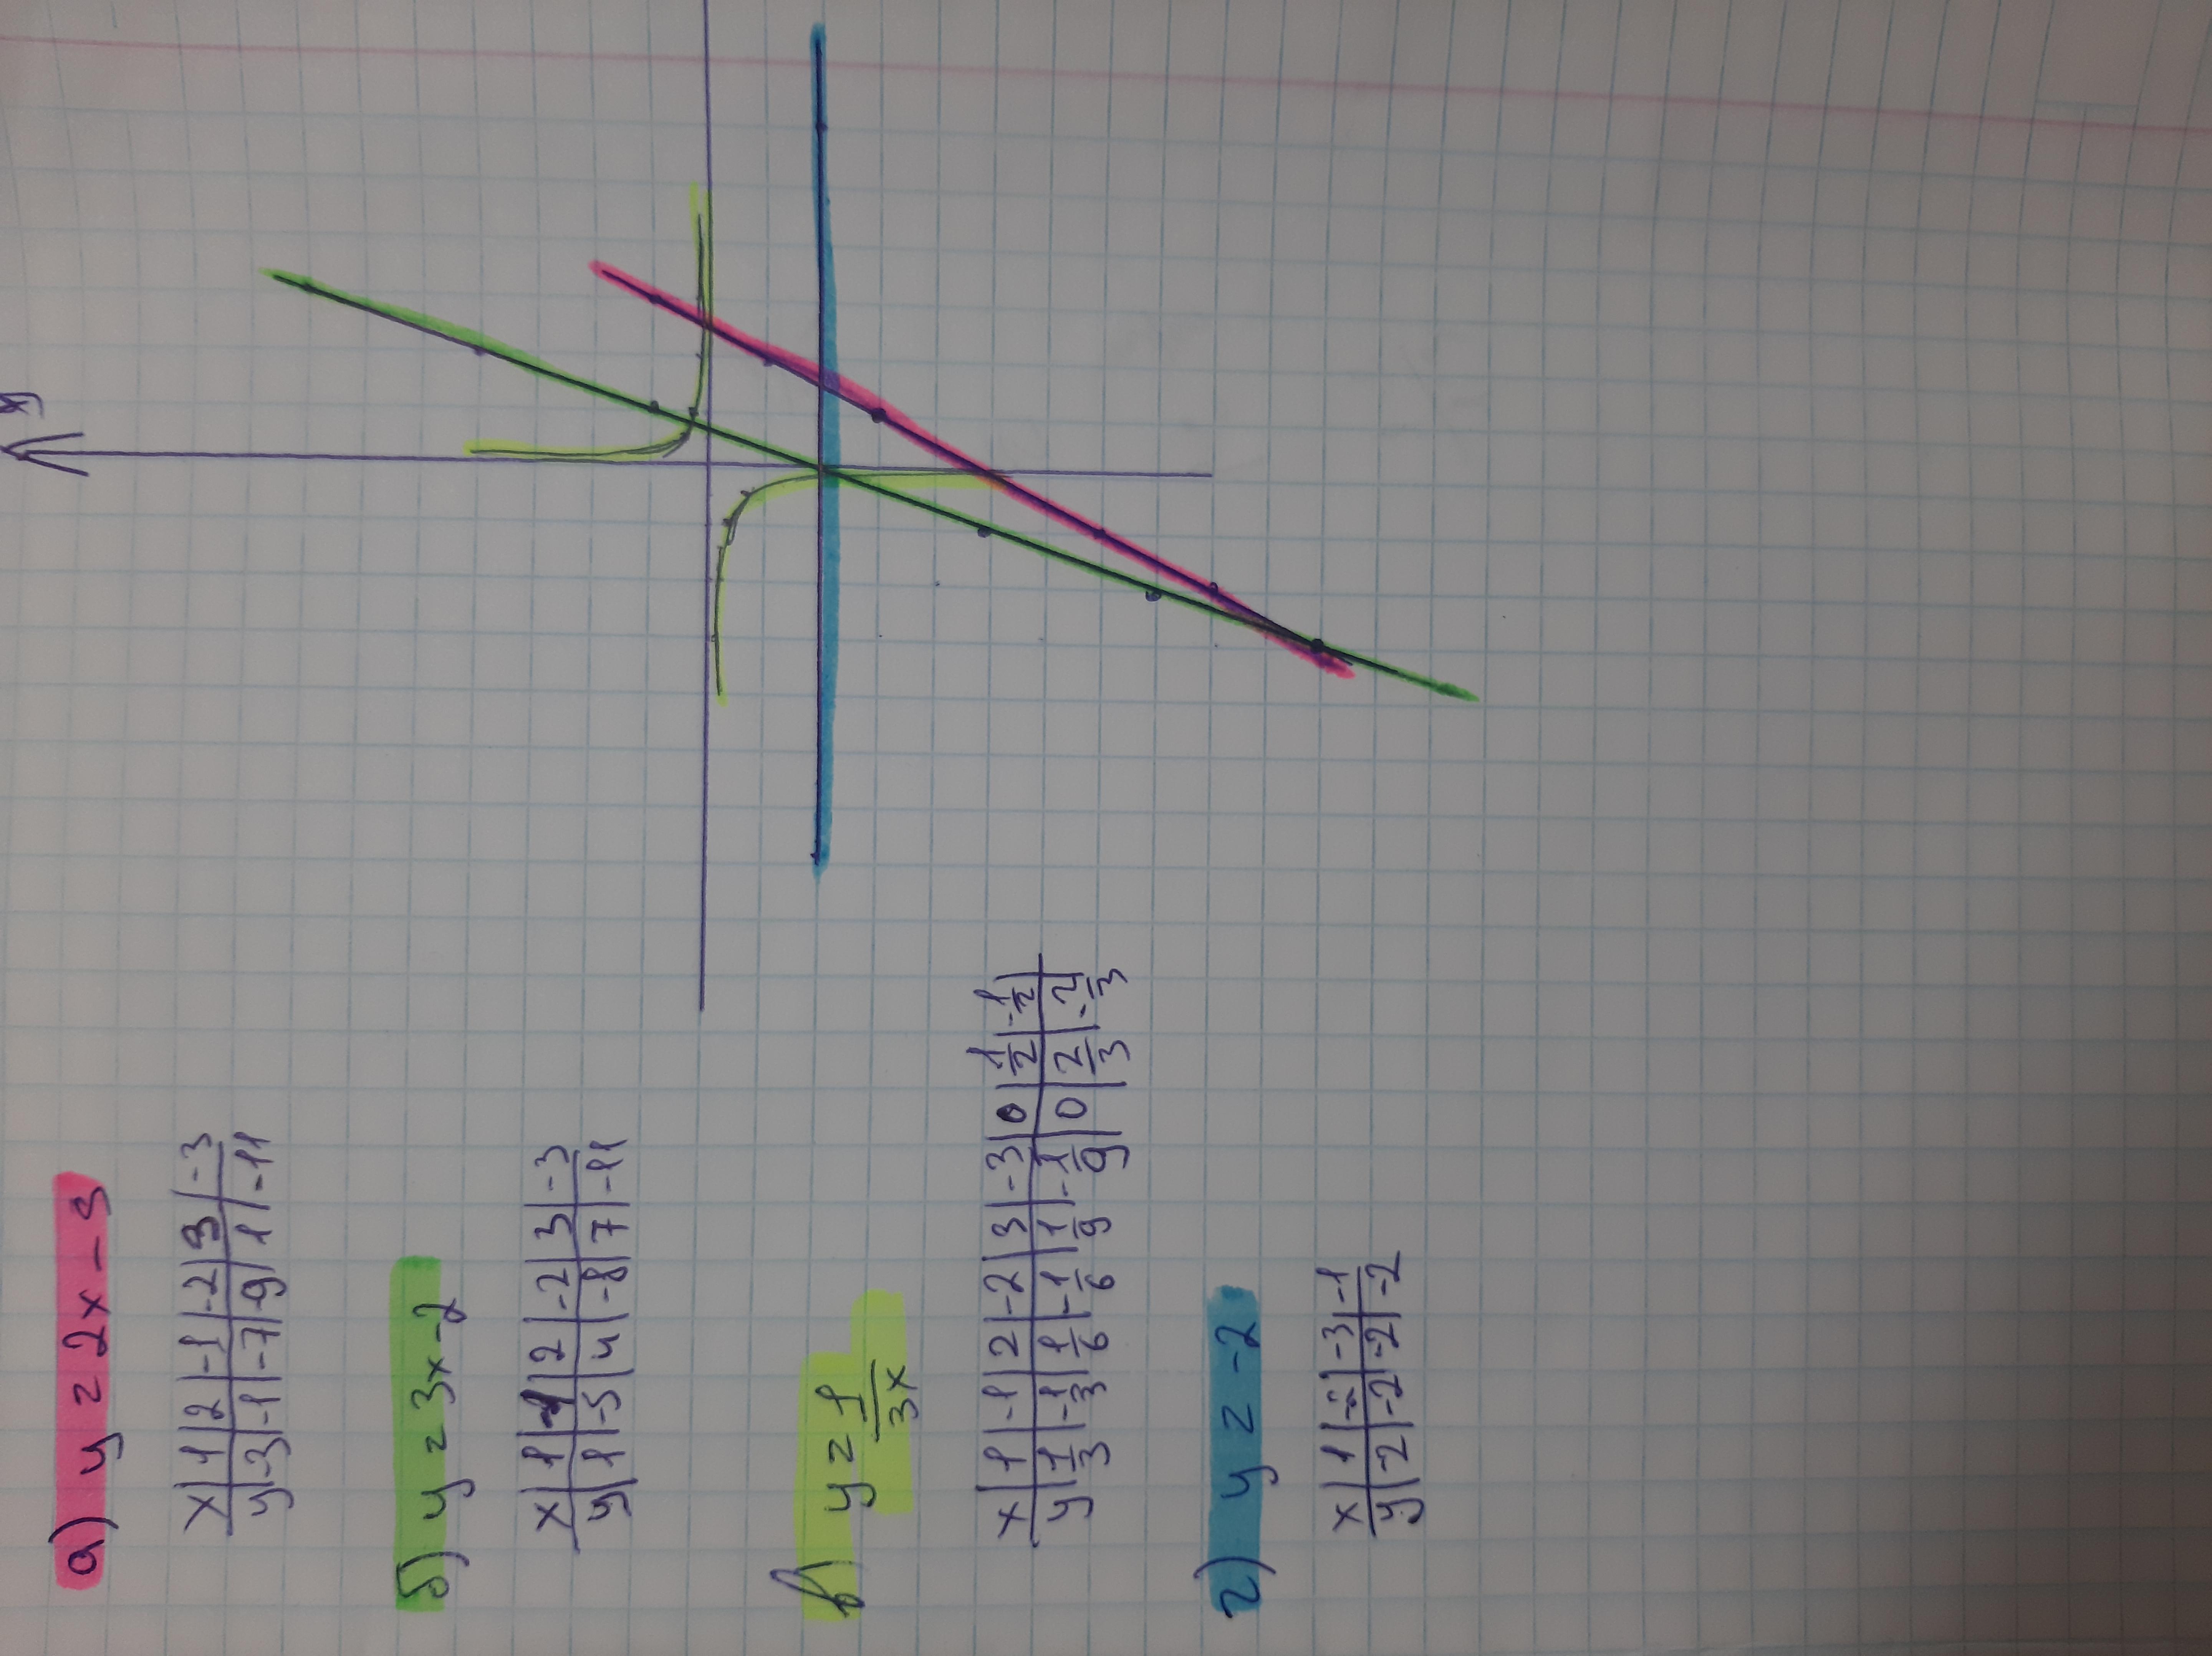 а) y = 2x - 5
x | 1 | 2 | -1 | -2 | 3 | -3
y | -3 | -1 | -7 | -9 | 1 | -11
б) y = 3x - 2
x | 1 | -1 | 2 | -2 | 3 | -3
y | 1 | -5 | 4 | -8 | 7 | -11
в) y = 1/3x
x | 1 | -1 | 2 | -2 | 3 | -3 | 0 | 1/2 | -1/2
y | 1/3 | -1/3 | 1/6 | -1/6 | 1/9 | -1/9 | 0 | 2/3 | -2/3
г) y = -2
x | 1 | -2 | -3 | -1
y | -2 | -2 | -2 | -2